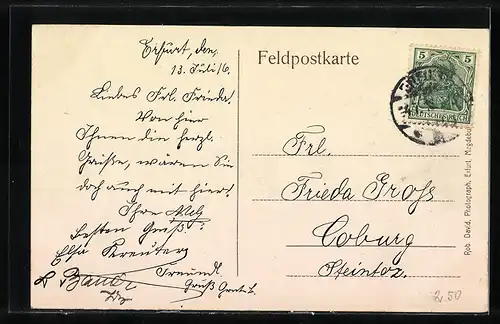 Erfurt, den
13. Juli 16.
Liebes Frl. Frieda!
Von hier
Ihnen die herzl.
Grüße, wären Sie
doch auch mit hier!
Ihre
besten Gruß.
Elsa Kreuter
Freundl.
Gruß
Feldpostkarte
5 5
DEUTSCHES REICH
Frl.
Frieda Groß
Coburg
Steintor.
Rob. David, Photograph, Erfurt, Magdebur
2.50